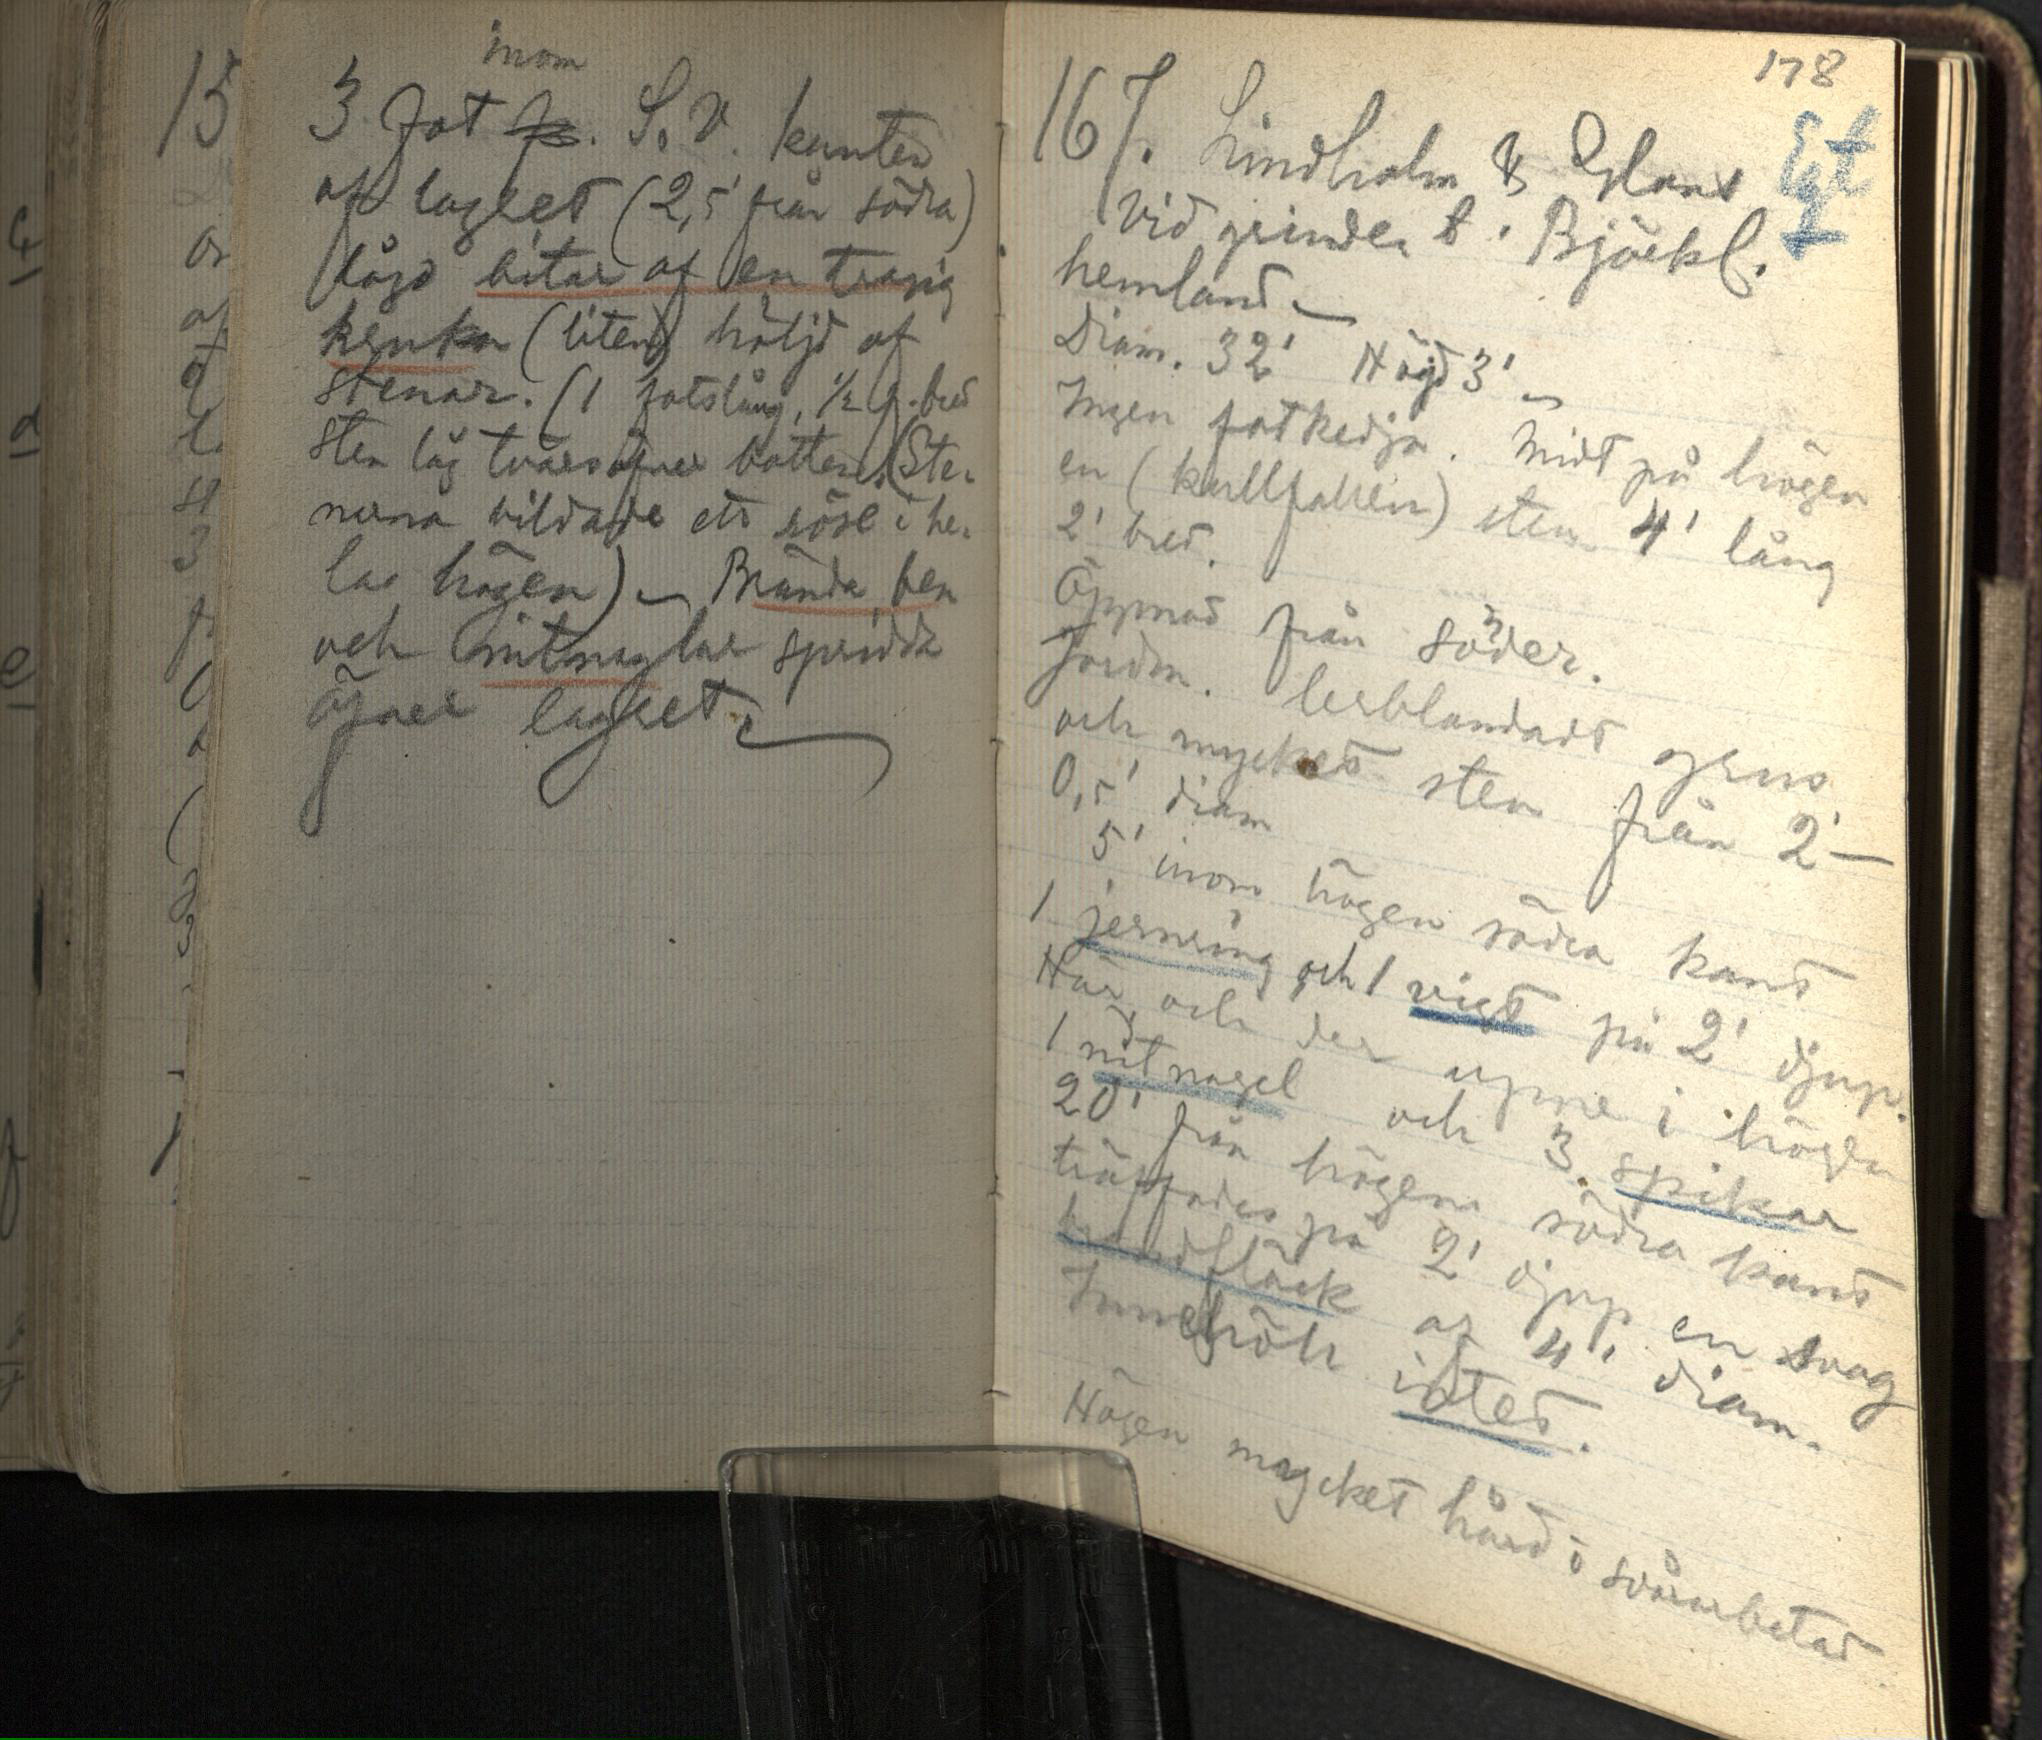 inom
3 fot fr. S.V. kanten
af lagret (2,5' från södra)
lågo bitar af en trasig
kruka (liten) höljd af
stenar. (1 fotslång, 1/2 f. bred
sten låg tvärsöfver botten. (Ste-
narna bildade ett röse i he-
la högen) — Brända ben
och nitnaglar spridda
öfver lagret.
178
167. Lindholm &
Vid grinden t. Björkl.
hemland —
Diam. 32' Höjd 3' —
Ingen fotkedja. Midt på högen
en (kullfallen) sten 4' lång
2' bred.
Öppnad från söder.
Jorden. lerblandadt grus
och mycket sten från 2' —
0,5' diam
5' inom högens södra kant
1 jernring och 1 vigt på 2' djup.
Här och der uppe i högen
1 nitnagel och 3 spikar
20' från högens södra kant
träffades på 2' djup en svag
brandfläck af 4' diam.
Innehöll intet.
Högen mycket hård o svårarbetad